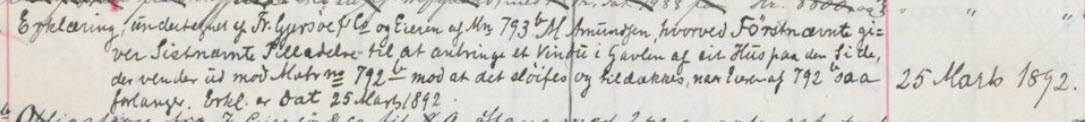 Erklæring, undertegnet af Fr. Gjersøe & Co og Eieren af Mn 793ᵇ M Amundsen, hvorved Førstnævnte gi=
ver Sistnævnte Tilladelse til at anbringe et Vindu i Gavlen af sit Hus paa den Side,
der vender ud mod Matr no 792ᵇ mod at det sløifes og tildækkes, naar Eieren af 792ᵇ saa
forlanger. Erkl. er dat 25 Marts 1892.
25 Marts 1892.